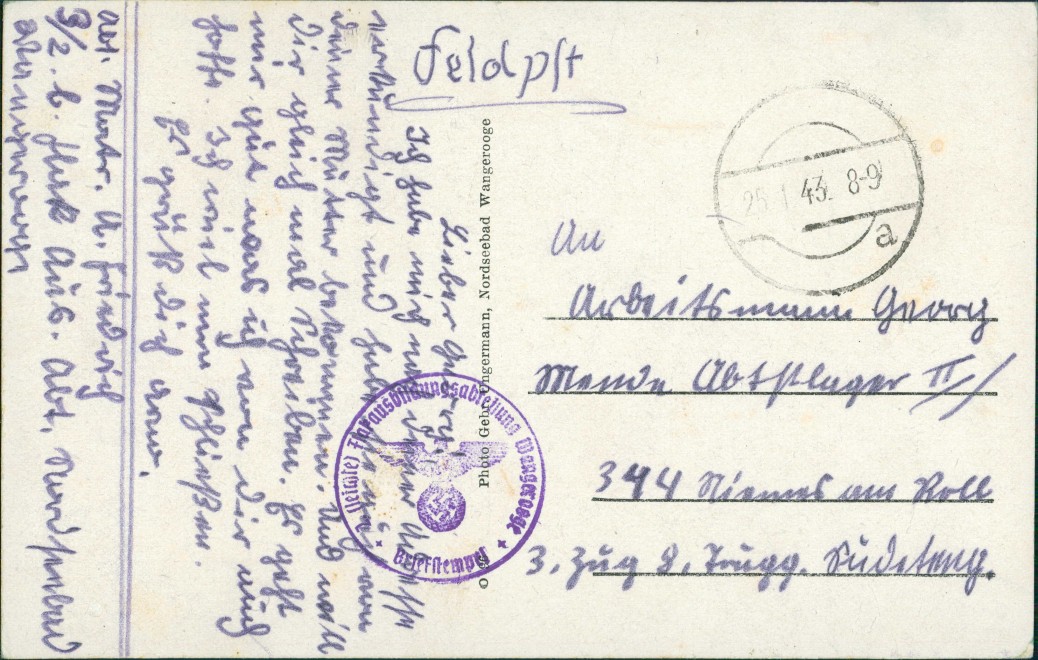 Feldpost
25.1.43. 8-9
a
An
Arbeitsmann Georg
Mende Abtslager II/
344 Niemes am Roll
3. Zug 8. Trupp. Sudeteng.
Photo Gebr. Ungermann, Nordseebad Wangerooge
Leichte Flakausbildungsabteilung Wangerooge
Briefstempel
Lieber Georg!
Ich habe mich nach deiner Adresse
erkundigt und habe von
deiner Mutter bekommen. Und will
dir gleich mal schreiben. Es geht
mir gut was ich von dir auch
hoffe. Ich will nun schließen.
Es grüßt dich Arno.
Abs. Matr. A. Friedrich
3/2. l. Flak Aus. Abt. Nordseebad
Wangerooge